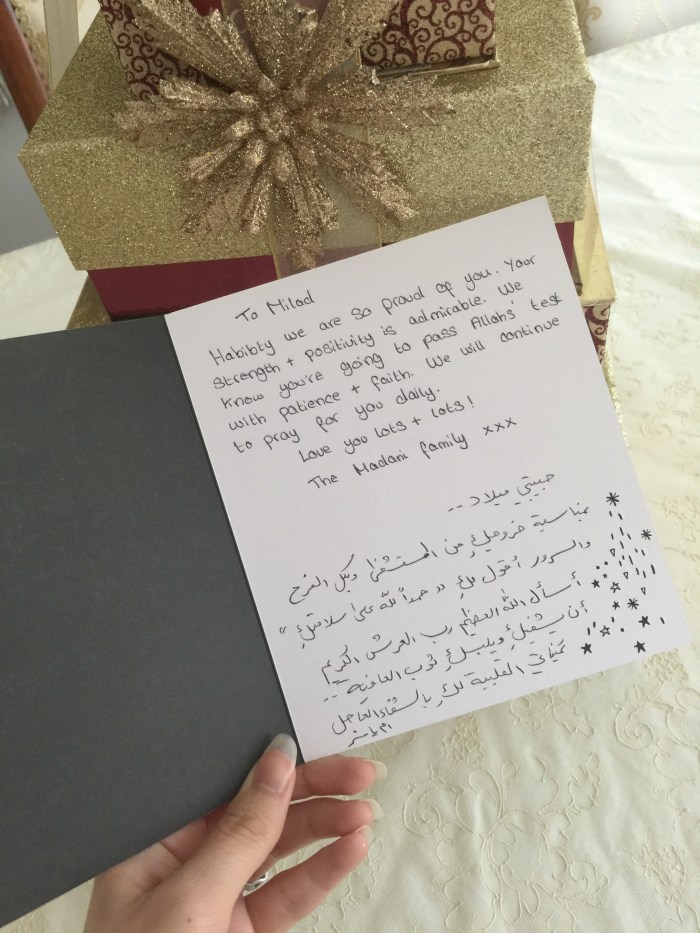 To Milad
Habibty we are so proud of you. Your
Strength + positivity is admirable. We
know you're going to pass Allahs' test
with patience + faith. We will continue
to pray for you daily.
Love you lots + lots!
The Madani family xxx
حبيبتي ميلاد ..
بمناسبة خروجكِ من المستشفى وبكل الفرح
والسرور أقول لكِ " حمداً لله على سلامتكِ "
أسأل الله العظيم رب العرش الكريم
أن يشفيكِ ويلبسكِ ثوب العافية ..
تمنياتي القلبية لكِ بالشفاء العاجل